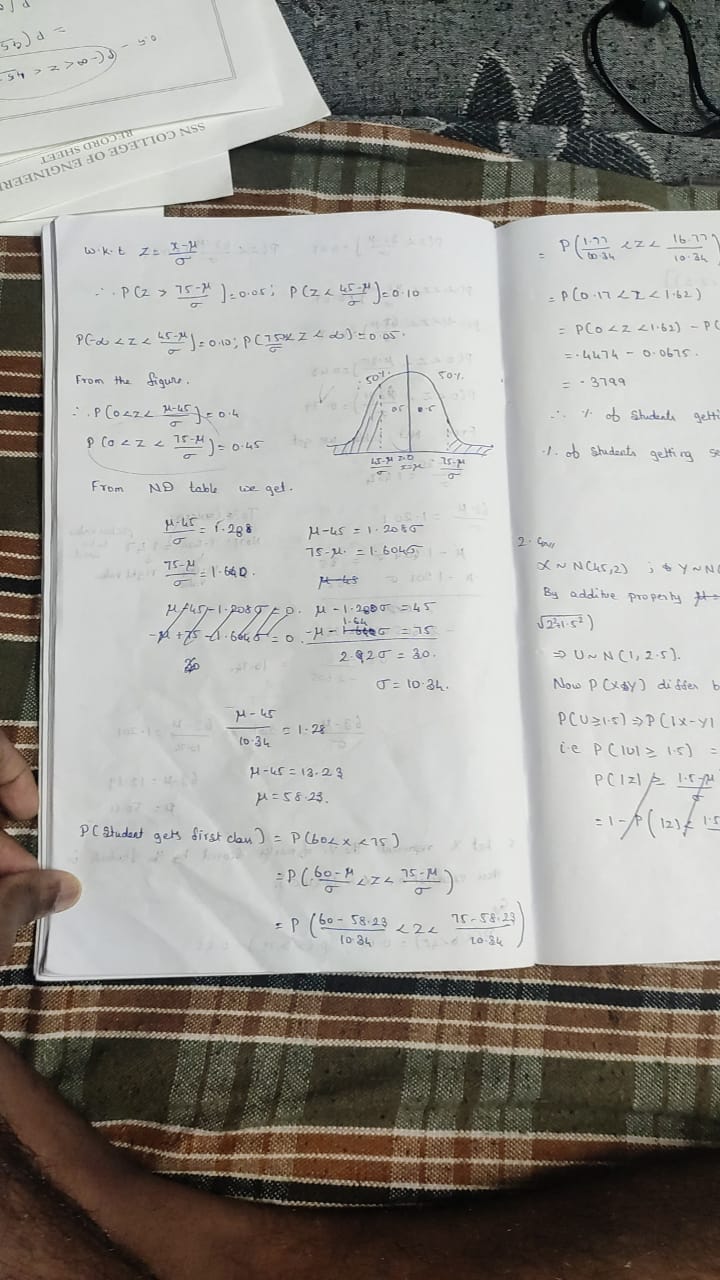 0.5 - P(-∞<z<45
= P(95
SSN COLLEGE OF ENGINEERI
RECORD SHEET
w.k.t Z = (x-μ)/σ
∴ P(Z > (75-μ)/σ) = 0.05; P(Z < (45-μ)/σ) = 0.10
P(-∞ < Z < (45-μ)/σ) = 0.10; P((75-μ)/σ < Z < ∞) = 0.05.
From the figure.
∴ P(0<z< (μ-45)/σ) = 0.4
P(0 < z < (75-μ)/σ) = 0.45
50% 50%
(45-μ)/σ z=0 (75-μ)/σ
From ND table we get.
(μ-45)/σ = 1.288 μ-45 = 1.208σ
(75-μ)/σ = 1.640. 75-μ = 1.604σ
μ-45
μ-45-1.208σ = 0. μ-1.280σ = 45
-μ+75-1.604σ = 0. -μ-1.64σ = 75
2.92σ = 30.
σ = 10.34.
(μ-45)/10.34 = 1.28
μ-45 = 13.23
μ = 58.23.
P(student gets first class) = P(60<x<75)
= P((60-μ)/σ < z < (75-μ)/σ)
= P((60-58.23)/10.34 < z < (75-58.23)/10.34)
= P(1.77/10.34 < z < 16.77/10.34)
= P(0.17 < z < 1.62)
= P(0 < z < 1.62) - P(
= .4474 - 0.0675.
= .3799
∴ % of students getti
% of students getting se
2.
X ~ N(45,2) ; Y ~ N(
By additive property μ=
√2²+1.5²)
⇒ U ~ N(1, 2.5).
Now P(X & Y) differ b
P(U ≥ 1.5) ⇒ P(|X-Y|
i.e P(|U| ≥ 1.5) =
P(|z| ≥ (1.5-μ)/σ
= 1 - P(|z| < 1.5